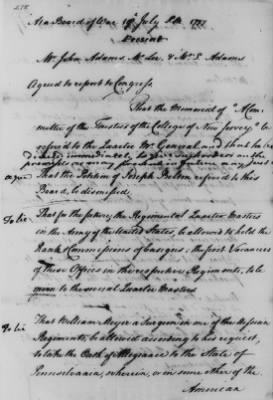 At a Board of War 19th July 1777
Present
Mr. John Adams, Mr. Lee, & Mr. S. Adams
Agreed to report to Congress.
That the Memorial of "
of the Trustees of the College of New Jersey" be
referred to the Quarter Mr. General and that he be
immediately to
agreed That the Petition of Joseph referred to this
Board, be dismissed.
To lie That for the future, the Regimental Quarter Masters
in the Army of the United States, be allowed to hold the
Rank & Commissions of Ensigns; the first Vacancies
of those Offices in the respective Regiments, to be
given to the several Quarter Masters
To lie That William a Surgeon in one of the Hessian
Regiments, be allowed according to his request,
to take the Oath of Allegiance to the State of
Pennsylvania, wherein, or in some other of the
American